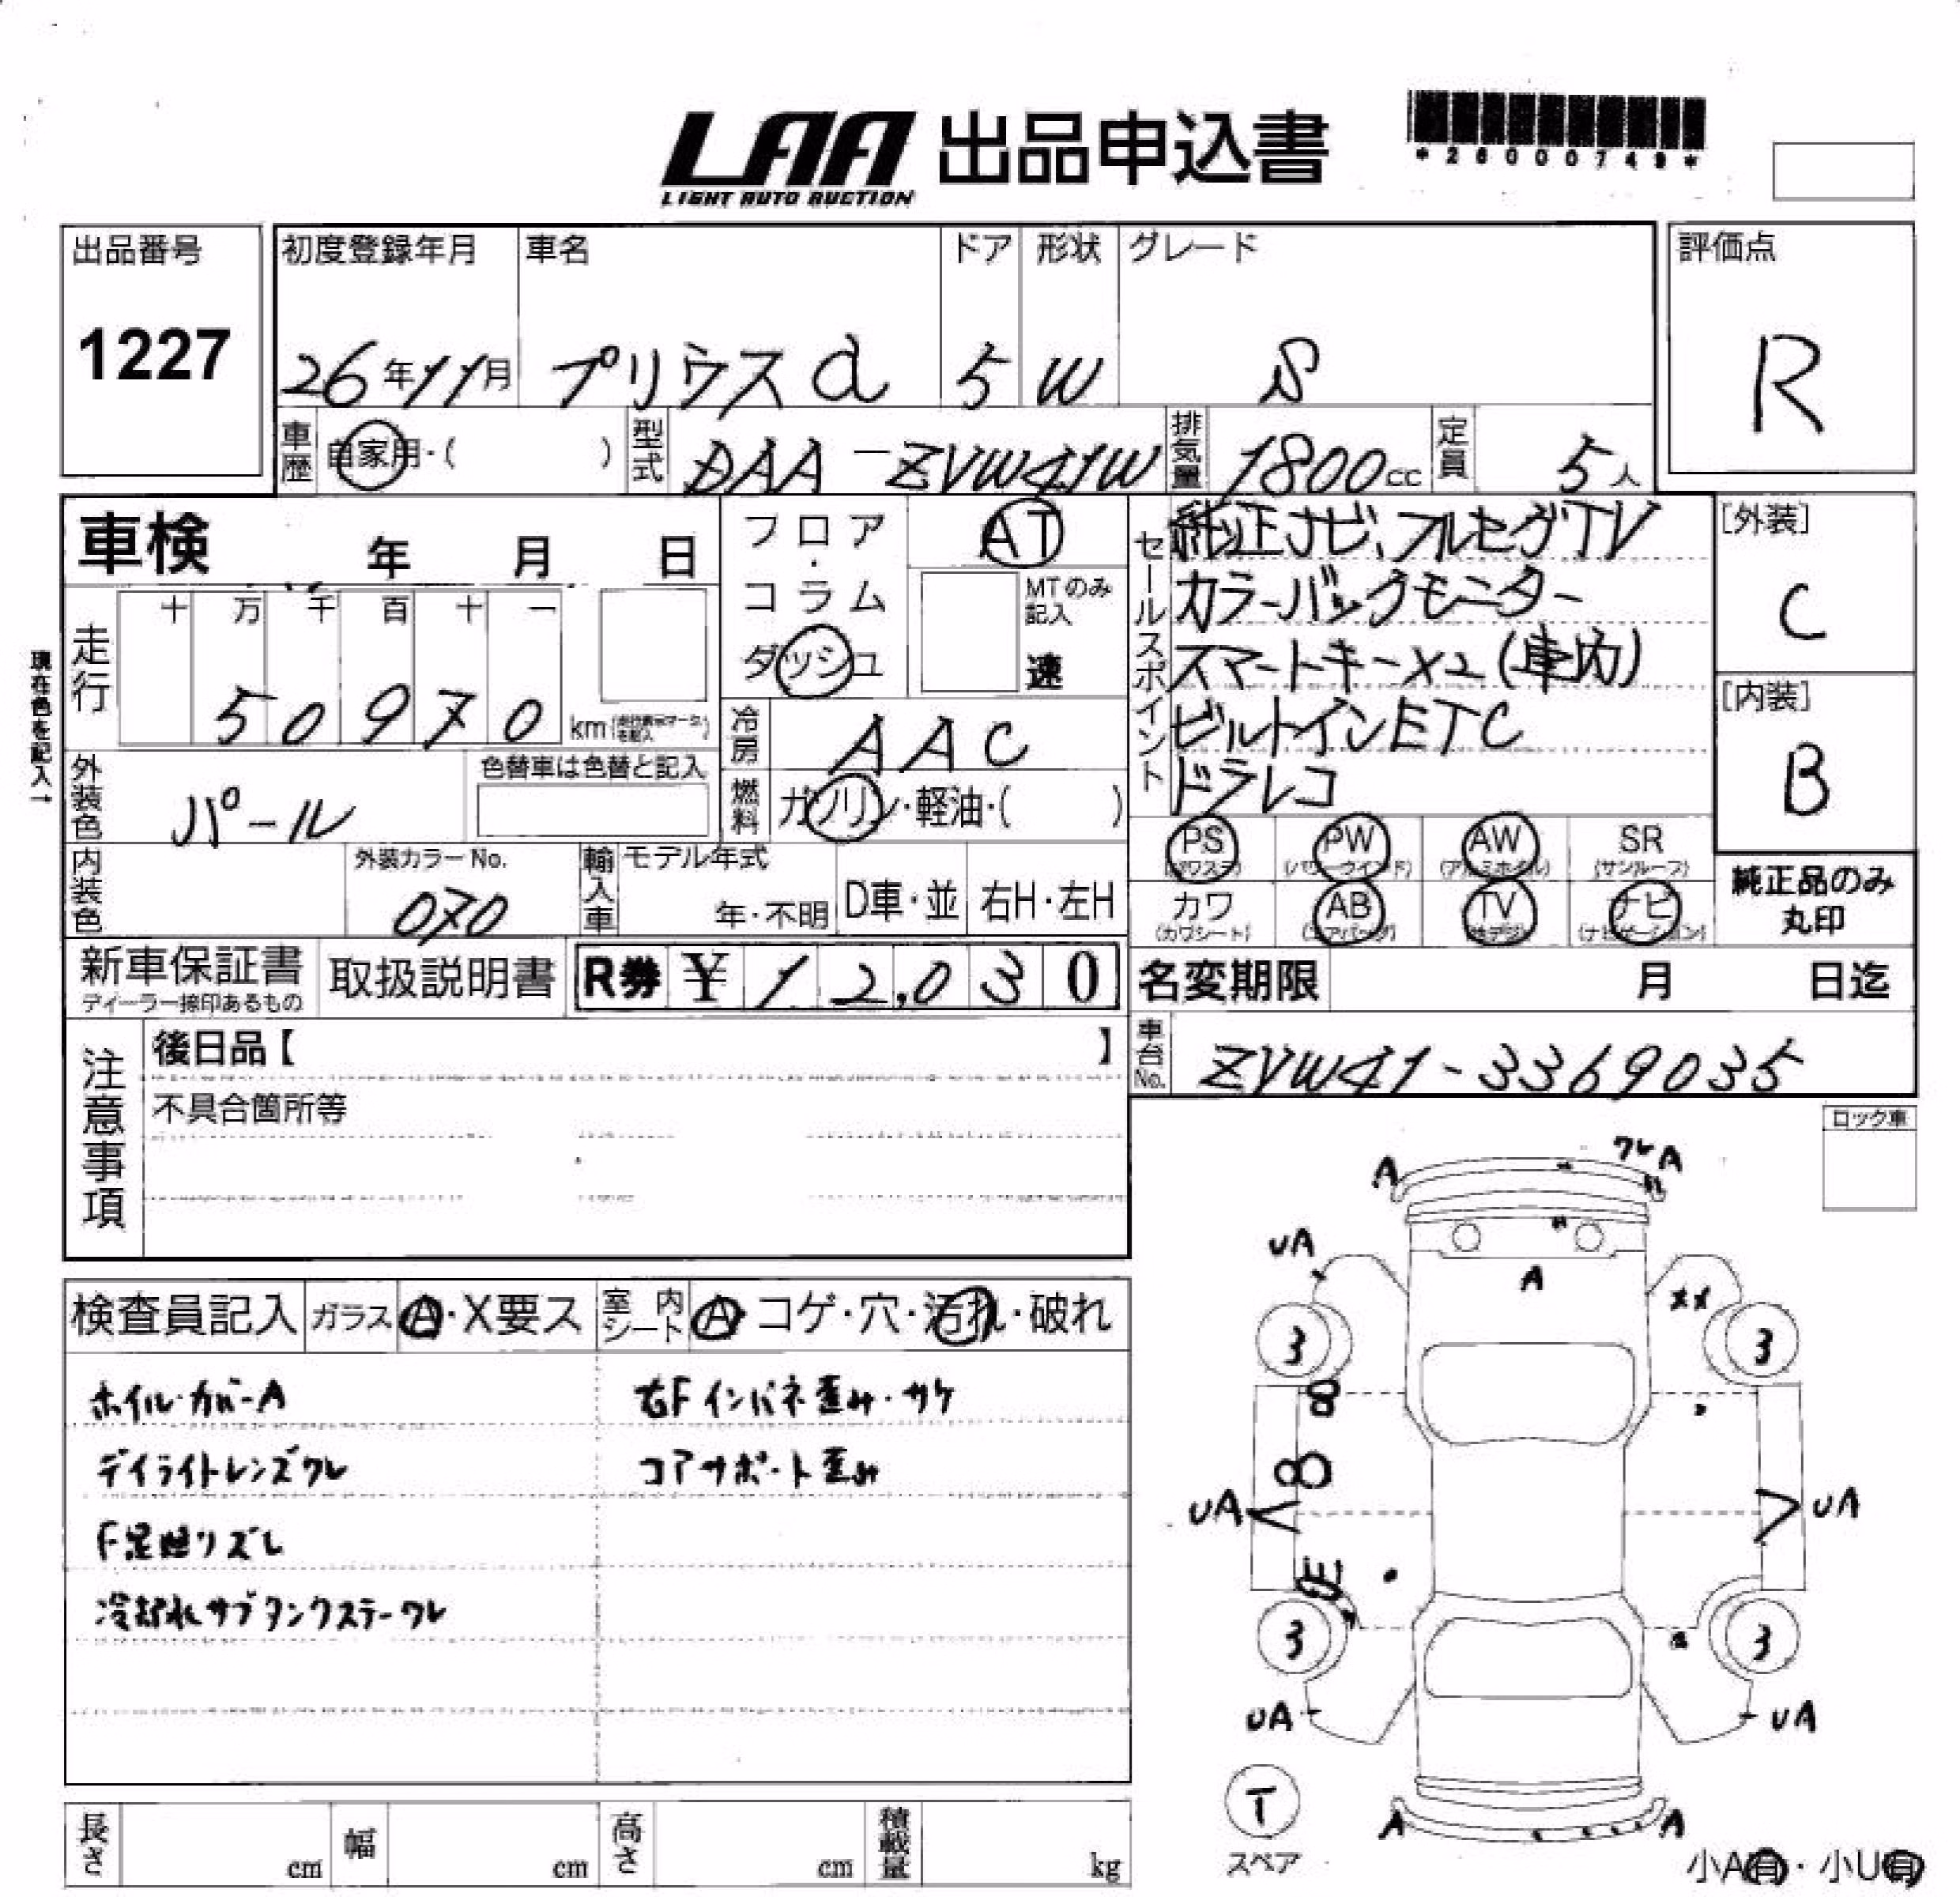 LAA 出品申込書
LIGHT AUTO AUCTION
*26000749*
出品番号
1227
初度登録年月 車名 ドア 形状 グレード
26年11月 プリウスα 5 W S
評価点
R
車歴 自家用・( ) 型式 DAA-ZVW41W 排気量 1800cc 定員 5人
車検 年 月 日
現在色を記入→
走行 十 万 千 百 十 一
50970 km
フロア・コラム ダッシュ
AT
MTのみ記入
速
冷房 AAC
燃料 ガソリン・軽油・( )
外装色 パール
色替車は色替と記入
内装色
外装カラーNo.
070
輸入車 モデル年式
年・不明 D車・並 右H・左H
セールスポイント
純正ナビ、フルセグTV
カラーバックモニター
スマートキーx2(車内)
ビルトインETC
ドラレコ
[外装]
C
[内装]
B
PS PW AW SR
(パワステ) (パワーウインド) (アルミホイル) (サンルーフ)
カワ AB TV ナビ
(カワシート) (エアバッグ) (地デジ) (ナビゲーション)
純正品のみ
丸印
新車保証書 取扱説明書 R券 ¥12,030
ディーラー捺印あるもの
名変期限 月 日迄
車台No. ZVW41-3369035
注意事項
後日品【 】
不具合箇所等
ロック車
検査員記入 ガラス A・X要ス 室内シート A・コゲ・穴・汚れ・破れ
ホイルカバーA
デイライトレンズワレ
F足廻リズレ
冷却水サブタンクステーワレ
右Fインパネ歪み・サケ
コアサポート歪み
A ワレA
UA A XX
3 3
8
8
UA UA
3 3
UA UA
T
スペア
A A
小A有・小U有
長さ cm 幅 cm 高さ cm 積載量 kg